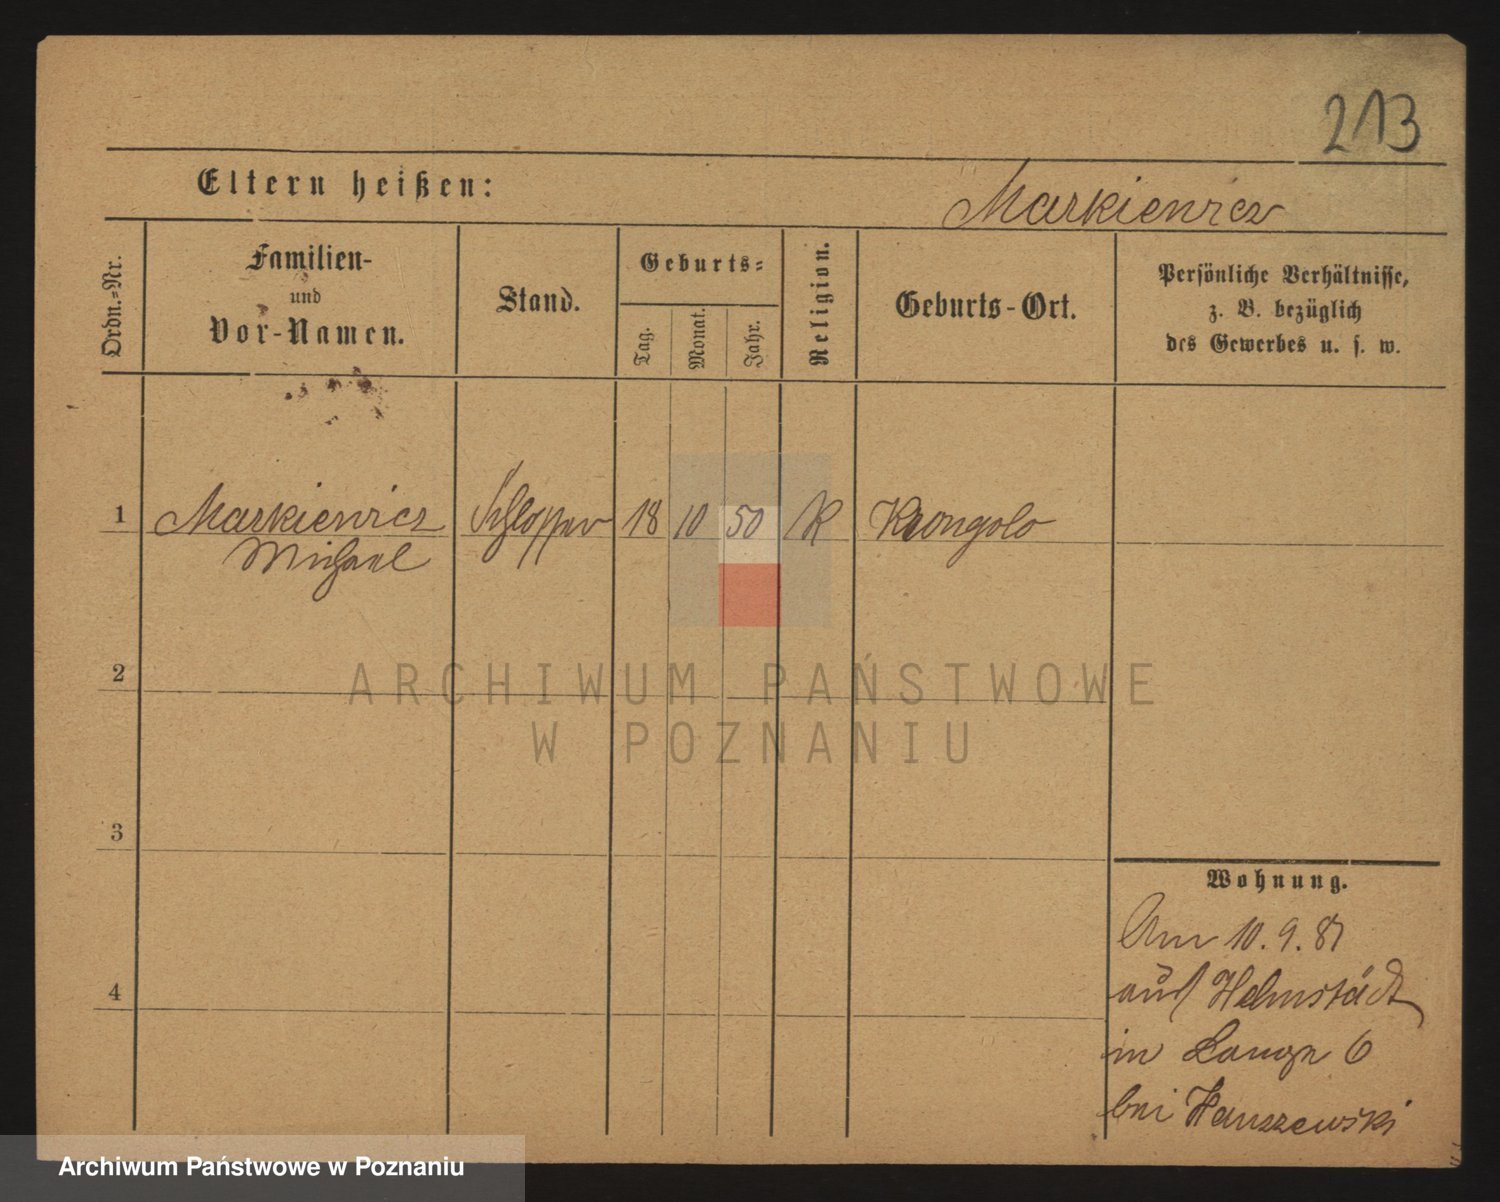 213
Eltern heißen:
Markiewicz
Ordn.=Nr.
Familien-
und
Vor-Namen.
Stand.
Geburts=
Tag.
Monat.
Jahr.
Religion.
Geburts-Ort.
Persönliche Verhältnisse,
z. B. bezüglich
des Gewerbes u. s. w.
1 Markiewicz 18 10 50 K Krongolo
Michael
2
ARCHIWUM PAŃSTWOWE
W POZNANIU
3
Wohnung.
Am 10. 9. 81
aus Helmstädt
4
in Lange 6
bei Hanszewski
Archiwum Państwowe w Poznaniu